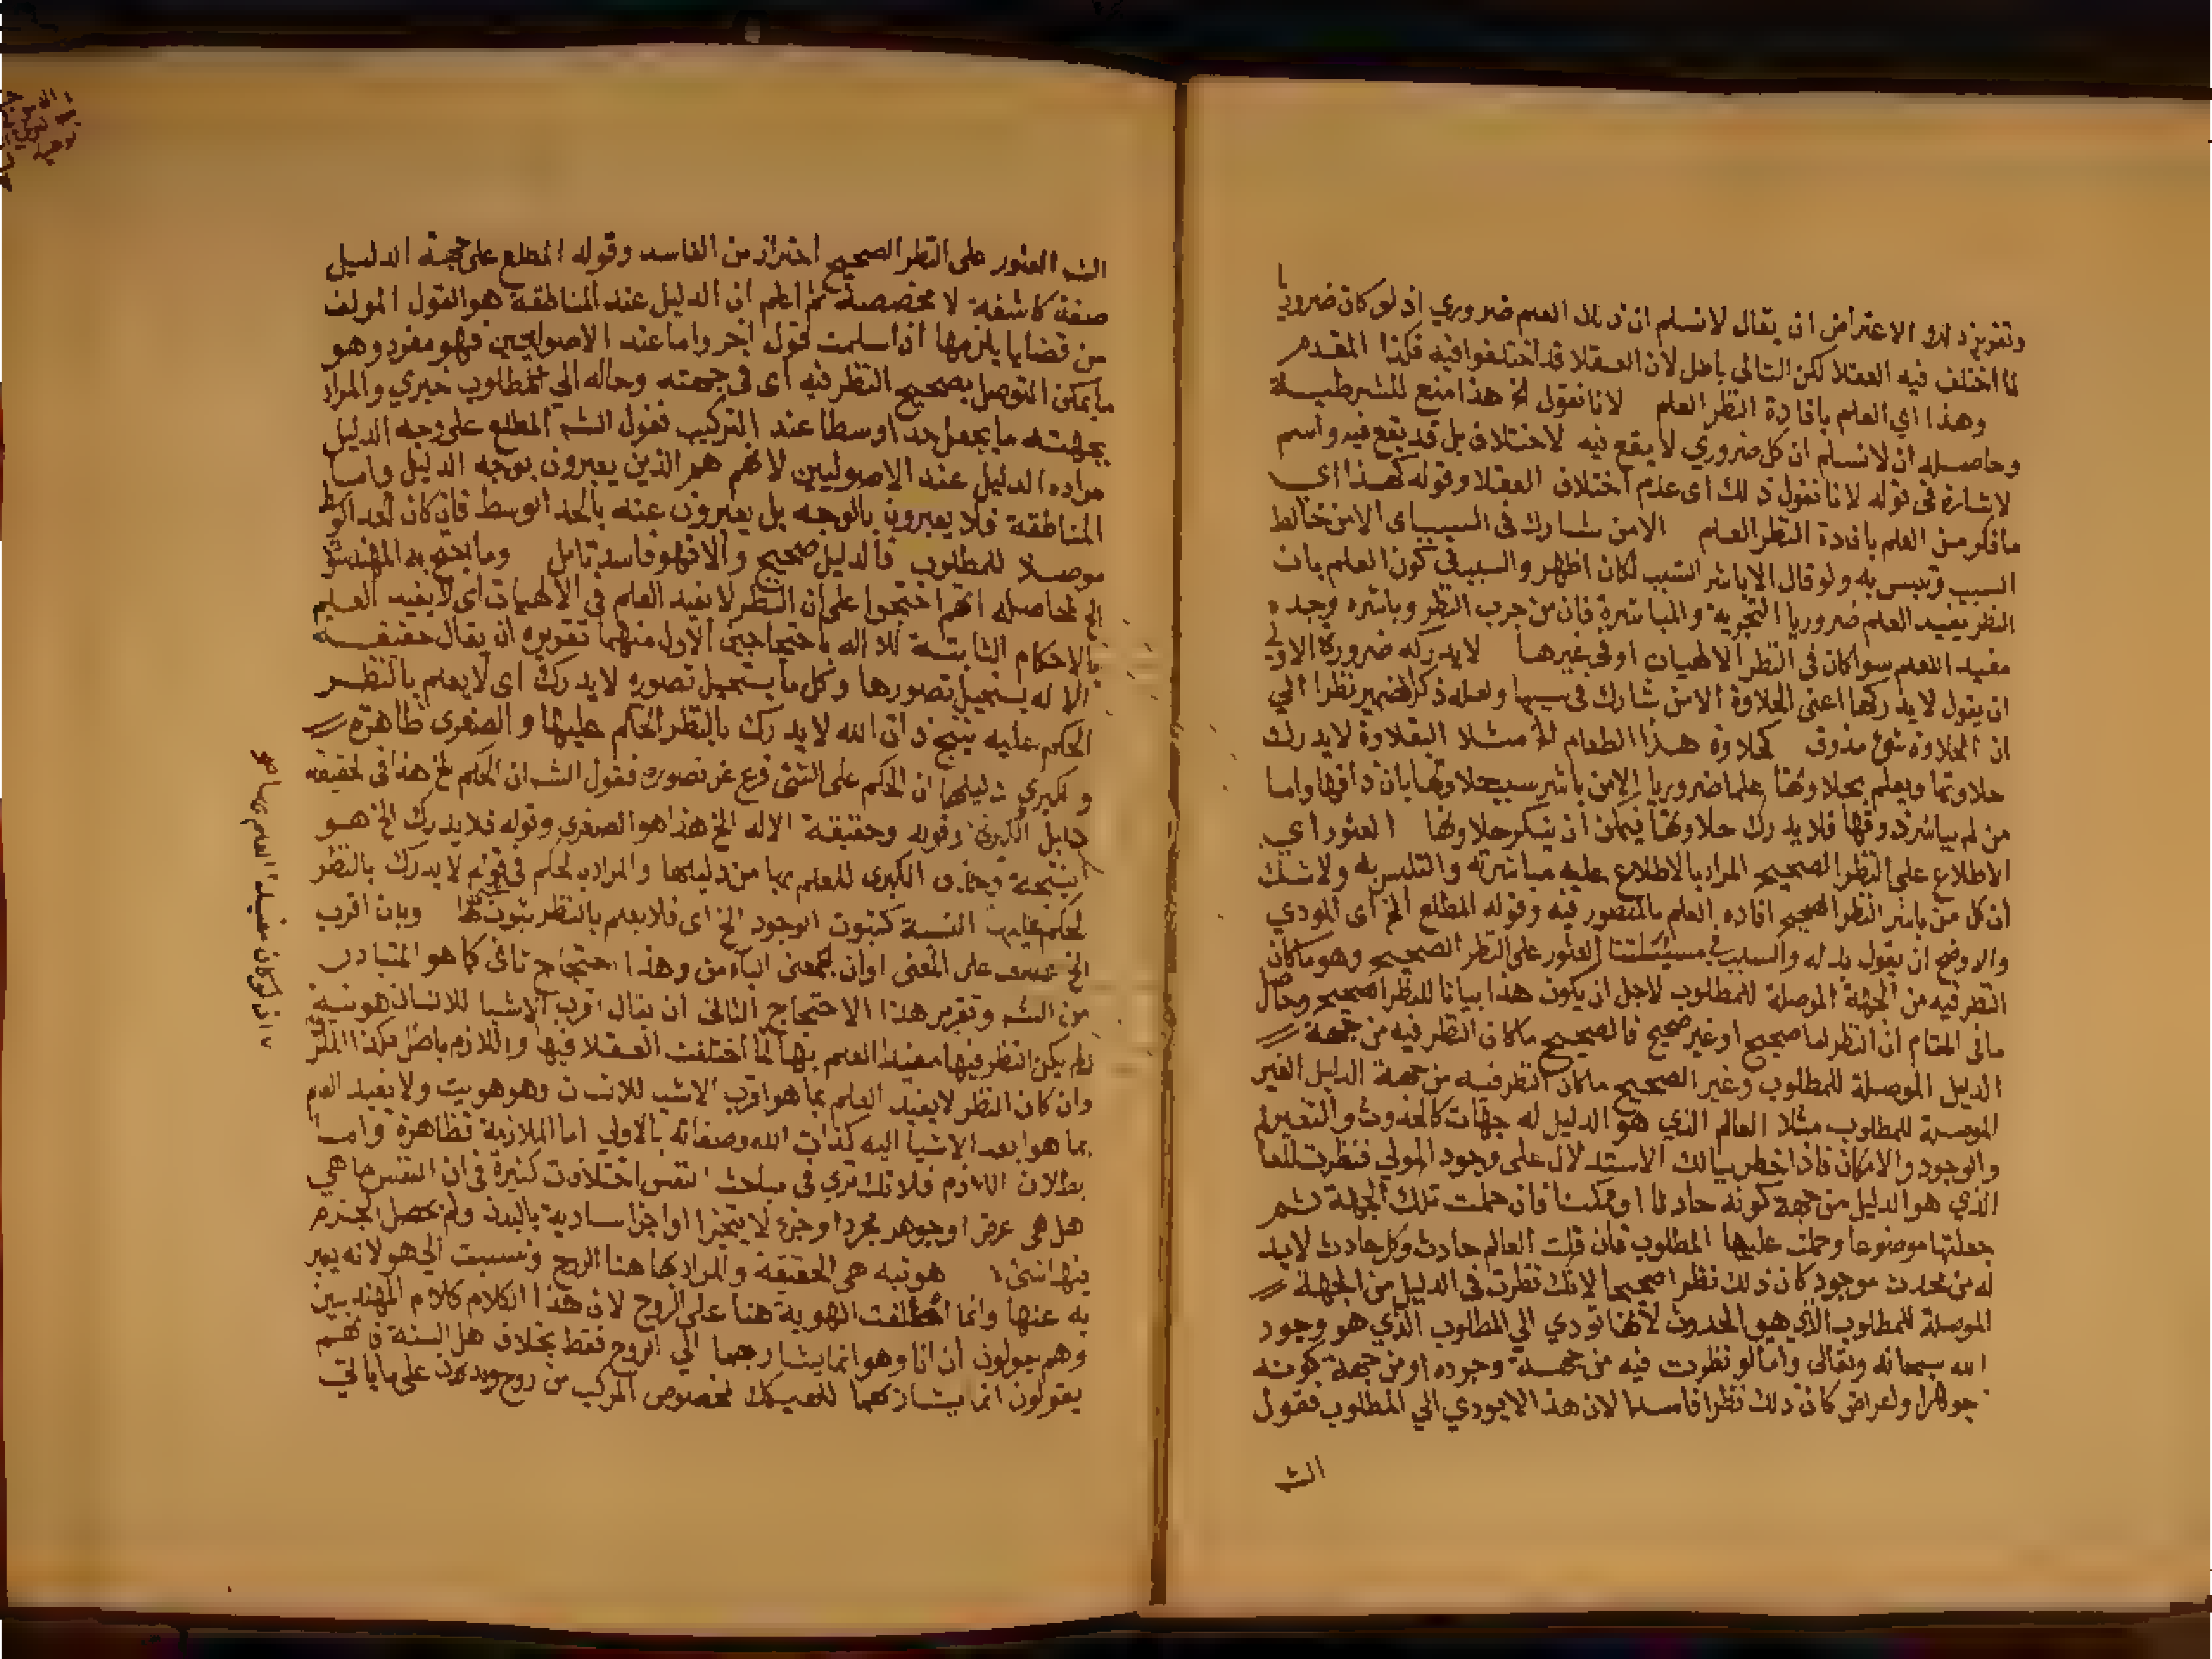 وتقرير ذلك الاعتراض ان يقال لا نسلم ان ذلك العلم ضروري اذ لو كان ضروريا
لما اختلف فيه العقلا لكن التالى باطل لان العقلا قد اختلفوا فيه فكذا المقدم
وهذا اي العلم بافادة النظر العلم لانا نقول الخ هذا منع للشرطية
وحاصله ان لا نسلم ان كل ضروري لا يقع فيه لاختلاف بل قد يقع فيه واسم
لاشارة فى قوله لانا نقول ذلك اى عدم اختلاف العقلا وقوله كهذا اى
ما ذكر من العلم بافادة النظر العلم الا من شارك فى السبب اى الا من خالط
السبب وتلبس به ولو قال الا باشر السبب لكان اظهر والسبب فى كون العلم بان
النظر يفيد العلم ضروريا التجربة والمباشرة فان من جرب النظر وباشره وجده
مفيد للعلم سوا كان فى النظر الالهيات او فى غيرها لا يدركه ضرورة الاولى
ان يقول لا يدركها اعنى الحلاوة الا من شارك فى سببها ولعله ذكر الضمير نظرا الي
ان الحلاوة شئ مذوق كحلاوة هذا الطعام الخ مثلا البقلاوة لا يدرك
حلاوتها ويعلم بحلاوتها علما ضروريا الا من باشر سبب حلاوتها بان ذاقها واما
من لم يباشر ذوقها فلا يدرك حلاوتها فيمكن ان ينكر حلاوتها العثور اي
الاطلاع على النظر الصحيح المراد بالاطلاع عليه مباشرته والتلبس به ولا شك
ان كل من باشر النظر الصحيح افاده العلم بالمنصور فيه وقوله المطلع الخ اى المودي
والاوضح ان يقول بدله والسبب فى مسئلتنا العثور على النظر الصحيح وهو ما كان
النظر فيه من الجهة الموصلة للمطلوب لاجل ان يكون هذا بيانا للنظر الصحيح وحاصل
ما فى المقام ان النظر اما صحيح او غير صحيح فالصحيح ما كان النظر فيه من جهة
الدليل الموصلة للمطلوب وغير الصحيح ما كان النظر فيه من جهة الدليل الغير
الموصلة للمطلوب مثلا العالم الذي هو الدليل له جهات كالحدوث والتغير
والوجود والامكان فاذا خطر ببالك الاستدلال على وجود المولي فنظرت للعالم
الذي هو الدليل من جهة كونه حادثا او ممكنا فان حملت تلك الجهة ثم
جعلتها موضوعا وحملت عليها المطلوب فان قلت العالم حادث وكل حادث لابد
له من محدث موجود كان ذلك نظرا صحيحا لانك نظرت فى الدليل من الجهة
الموصلة للمطلوب الذي هو الحدوث لانها تودي الي المطلوب الذي هو وجود
الله سبحانه وتعالى واما لو نظرت فيه من جهة وجوده او من جهة كونه
جوهرا ولعراض كان ذلك نظرا فاسدا لان هذا لا يودي الي المطلوب فقول
الش
الش العثور على النظر الصحيح احتراز من الفاسد وقوله المطلع على جهة الدليل
صفة كاشفة لا مخصصة ثم اعلم ان الدليل عند المناطقة هو القول المولف
من قضايا يلزمها اذا سلمت قول اخر واما عند الاصوليين فهو مفرد وهو
ما يمكن التوصل بصحيح النظر فيه اى فى جهته وحاله الي مطلوب خبري والمراد
بجهته ما يجعل حدا وسطا عند التركيب فقول الشم المطلع على وجه الدليل
مراده الدليل عند الاصوليين لانهم هم الذين يعبرون بوجه الدليل واما
المناطقة فلا يعبرون بالوجه بل يعبرون عنه بالحد الوسط فان كان الحد الوسط
موصلا للمطلوب فالدليل صحيح والا فهو فاسد تامل وما يحتج به المهندسون
الخ حاصله انهم احتجوا على ان النظر لا يفيد العلم فى الالهيات اى لا يفيد العلم
بالاحكام الثابتة للاله باحتجاجين الاول منهما تقريره ان يقال حقيقة
الاله يستحيل تصورها وكل ما يستحيل تصوره لا يدرك اى لا يعلم بالنظر
الحكم عليه ينتج ذات الله لا يدرك بالنظر الحكم عليها والصغرى ظاهرة
والكبرى دليلها ان الحكم على الشئ فرع عن تصوره فقول الش ان الحكم الخ هذا فى الحقيقة
دليل الكبرى وقوله وحقيقة الاله الخ هذا هو الصغرى وقوله فلا يدرك الخ هو
النتيجة وحذف الكبرى للعلم بها من دليلها والمراد بالحكم فى قولهم لا يدرك بالنظر
الحكم عليها النسبة كثبوت الوجود الخ اى فلا يعلم بالنظر ثبوت وبان اقرب
الخ عطف على المعنى او ان بمعنى الباء من وهذا احتجاج ثانى كما هو المتبادر
من الش وتقرير هذا الاحتجاج الثانى ان يقال اقرب الاشيا للانسان هويته
ولم يكن النظر فيها مفيدا للعلم بها لما اختلفت العقلا فيها واللازم باطل فكذا الملزوم
وان كان النظر لا يفيد العلم بما هو اقرب الاشيا للانسان وهو هويته ولا يفيد العلم
بما هو ابعد الاشيا اليه كذات الله وصفاته بالاولي اما الملازمة فظاهرة واما
بطلان اللازم فلانك تري فى مباحث النفس اختلافات كثيرة فى ان النفس ما هي
هل هى عرض او جوهر مجرد او جزء لا يتجزا او اجزا سارية بالبدن ولم يحصل الجزم
فيها بشئ هويته هى الحقيقة والمراد بها هنا الروح ونسبت الي هو لانه يعبر
به عنها وانما اطلقت الهوية هنا على الروح لان هذا الكلام كلام المهندسين
وهم يقولون ان انا وهو انما يشار بهما الي الروح فقط بخلاف هل السنة فانهم
يقولون انما يشار بهما للهيكل المخصوص المركب من روح وبدن على ما ياتي